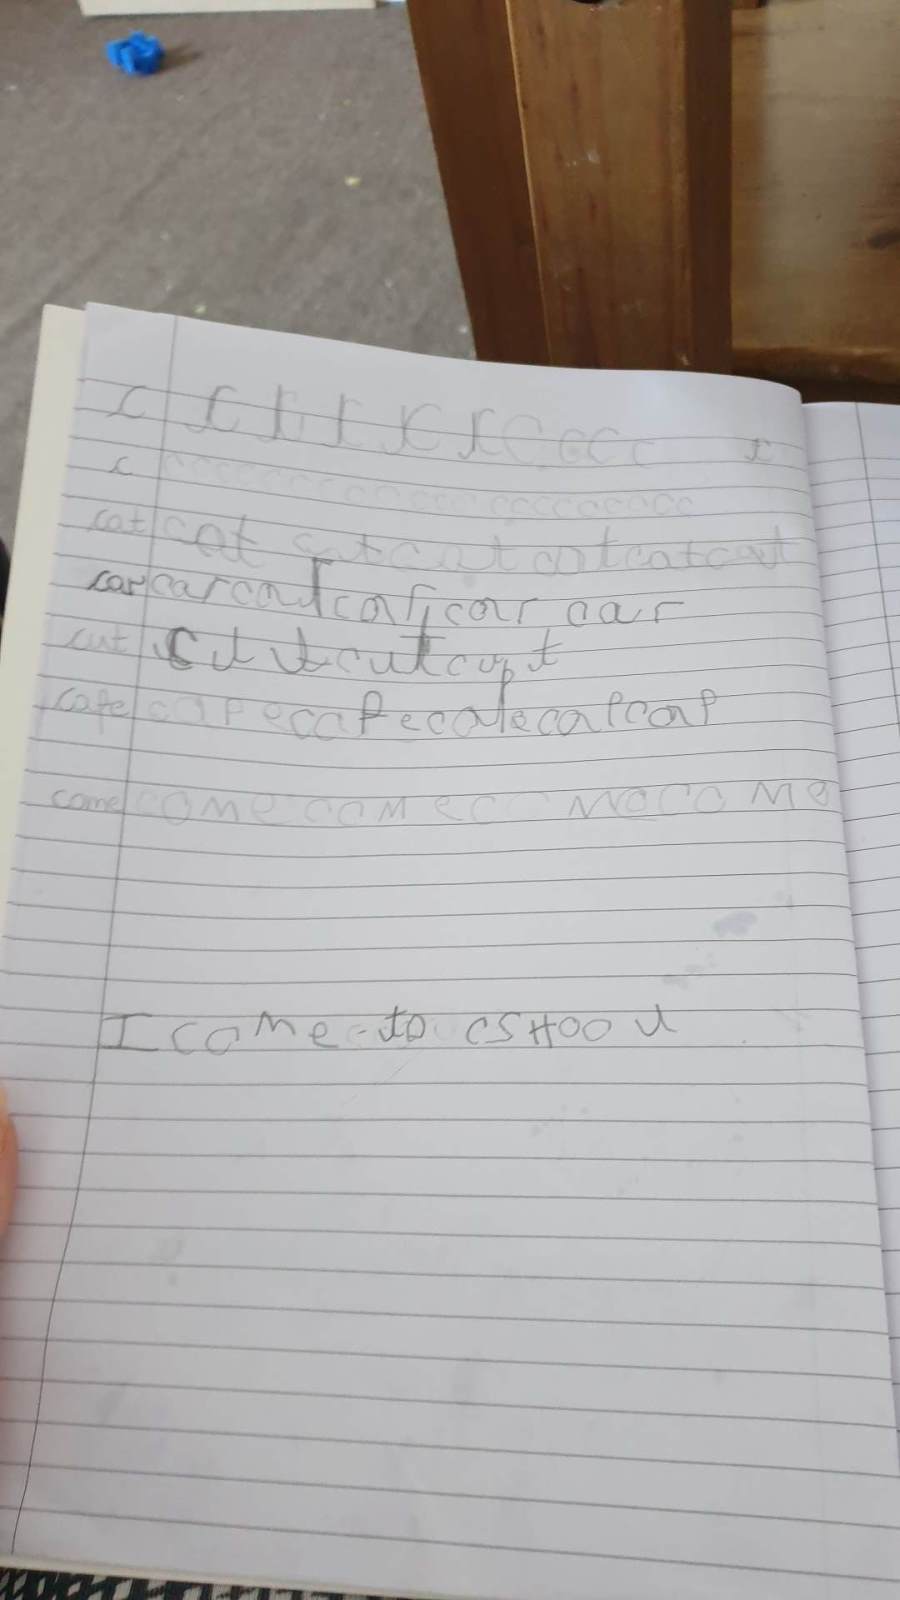 c c c c c c c c c c c
c ccccccccccccccccccccc
cat cat cat cat cat cat cat
car car car car car car
cut cut cut cut
cape cape cape cape cap cap
come come come come come
I come to cSHOOl